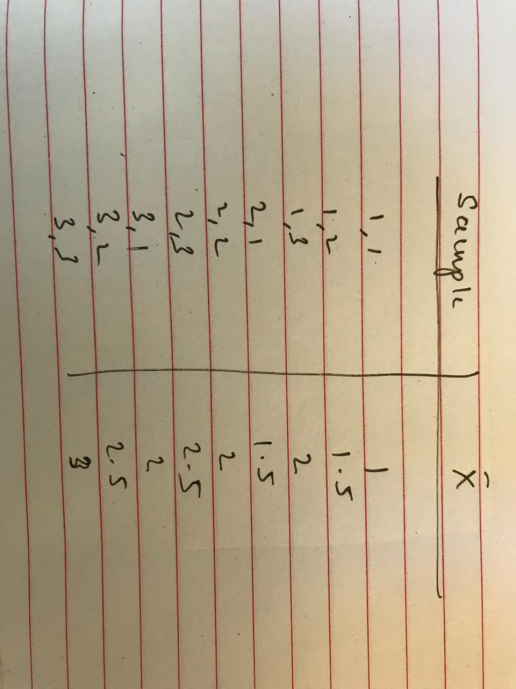 Sample x̄
1,1 1
1,2 1.5
1,3 2
2,1 1.5
2,2 2
2,3 2.5
3,1 2
3,2 2.5
3,3 3